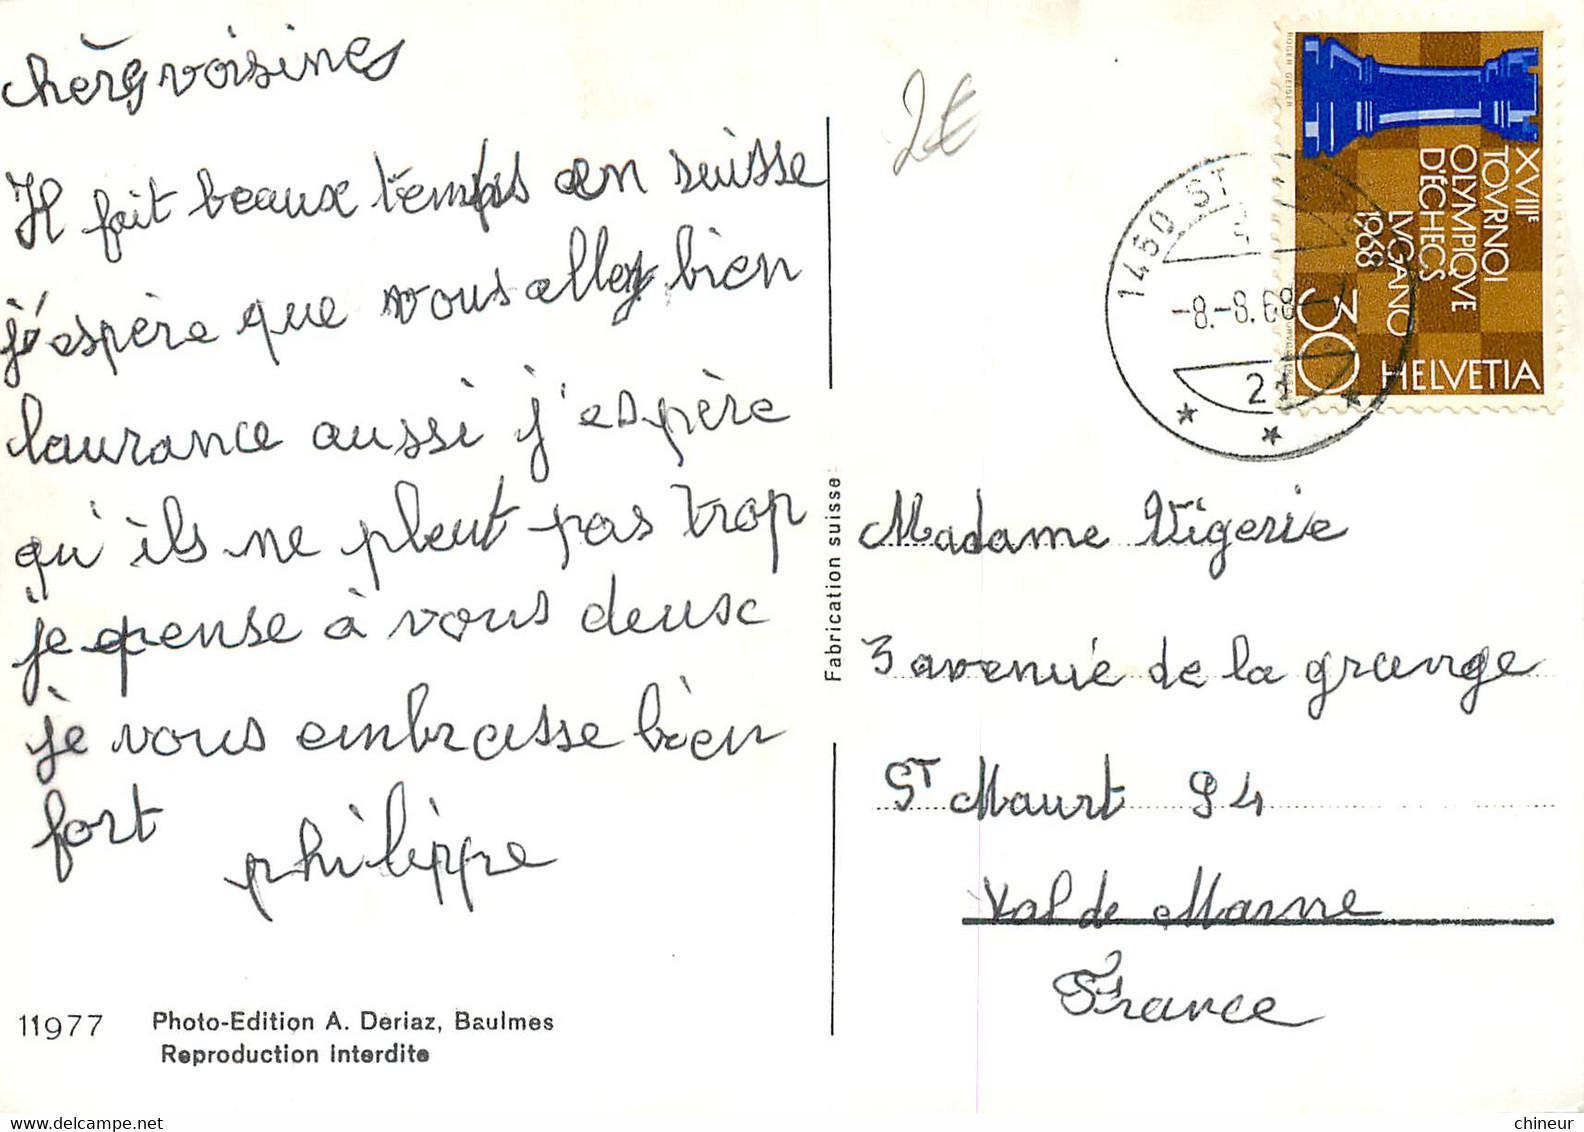 chères voisines
Il fait beaux temps en suisse
j'espère que vous allez bien
laurance aussi j'espère
qu'ils ne pleut pas trop
je pense à vous deux
je vous embrasse bien
fort
philippe
11977
Photo-Edition A. Deriaz, Baulmes
Reproduction interdite
Fabrication suisse
2€
1450 ST
-8.-8.68
21
ROGER GEISER
XVIIIE
TOVRNOI
OLYMPIQVE
D'ÉCHECS
LVGANO
1968
30
HELVETIA
Madame Vigerie
3 avenue de la grange
ST Maurt 94
Val de Marne
France
chineur